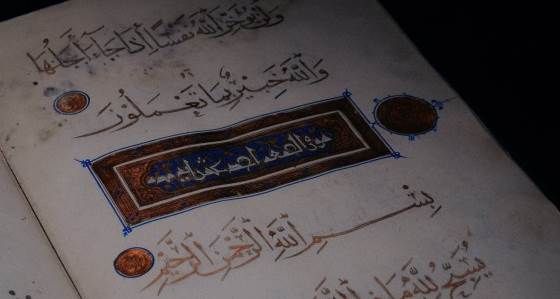 وَلَنْ يُؤَخِّرَ اللَّهُ نَفْسًا إِذَا جَاءَ أَجَلُهَا
وَاللَّهُ خَبِيرٌ بِمَا تَعْمَلُونَ
سورة
بِسْمِ اللَّهِ الرَّحْمَٰنِ الرَّحِيمِ
يُسَبِّحُ لِلَّهِ مَا فِي